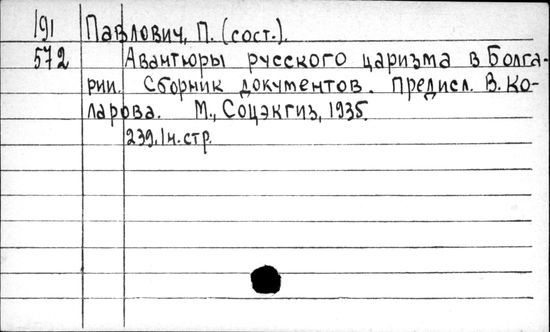 191 Павлович, П. (сост.).
572 Авантюры русского царизма в Болга-
рии. Сборник документов. Предисл. В. Ко-
ларова. М., Соцэкгиз, 1935.
239, 1 н. стр.